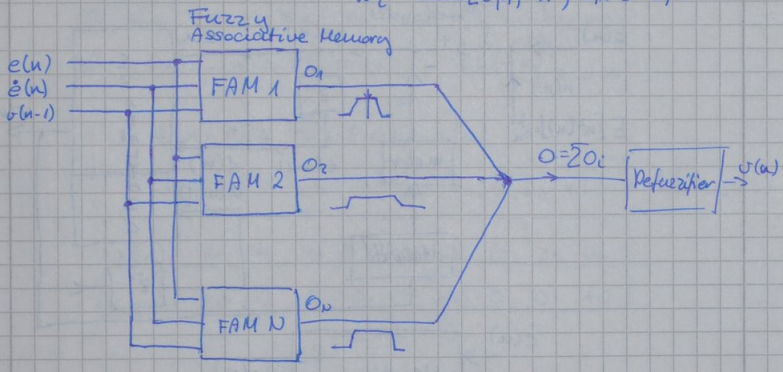 Fuzzy
Associative Memory
e(n)
ė(n)
v(n-1)
FAM 1
O1
FAM 2
O2
FAM N
ON
O=ΣOi
Defuzzifier
v(n)